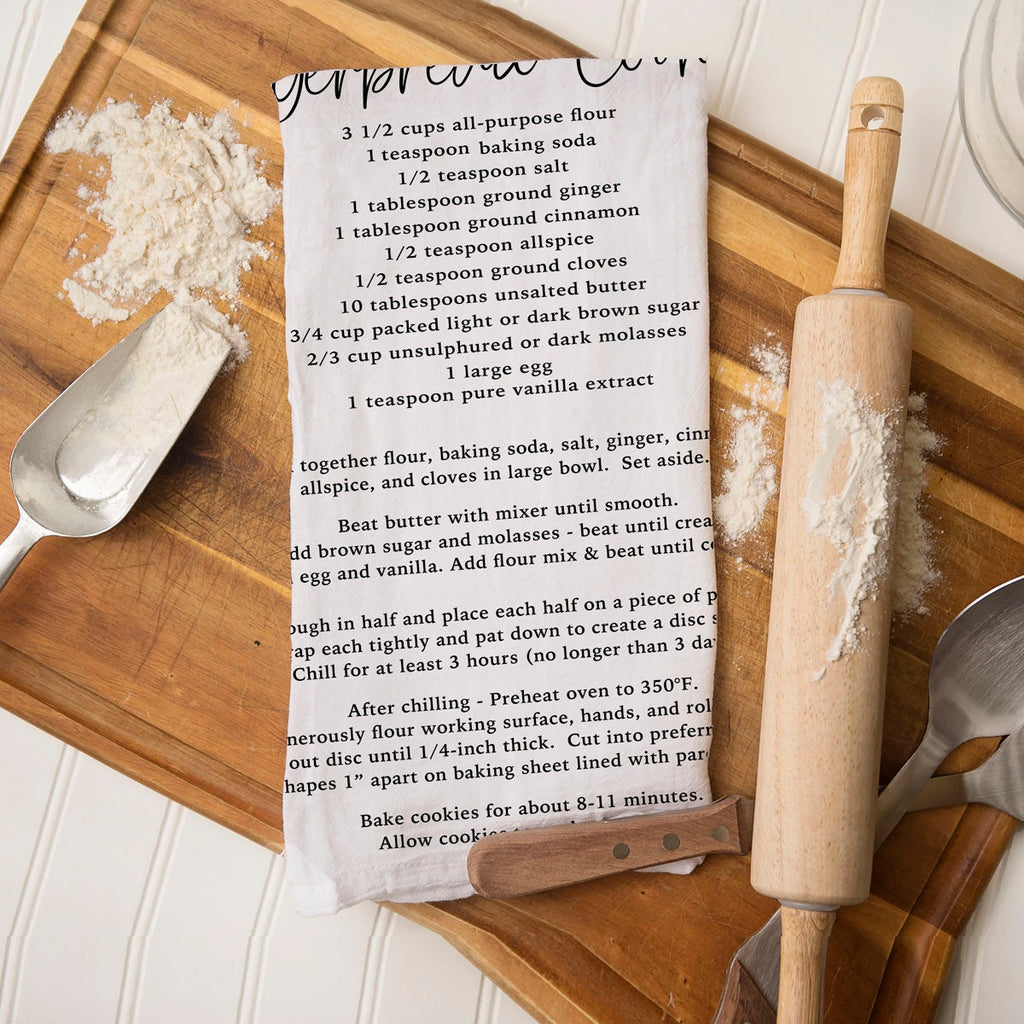 gerbread Cook
3 1/2 cups all-purpose flour
1 teaspoon baking soda
1/2 teaspoon salt
1 tablespoon ground ginger
1 tablespoon ground cinnamon
1/2 teaspoon allspice
1/2 teaspoon ground cloves
10 tablespoons unsalted butter
3/4 cup packed light or dark brown sugar
2/3 cup unsulphured or dark molasses
1 large egg
1 teaspoon pure vanilla extract
together flour, baking soda, salt, ginger, cinn
allspice, and cloves in large bowl. Set aside.
Beat butter with mixer until smooth.
dd brown sugar and molasses - beat until crea
egg and vanilla. Add flour mix & beat until c
ough in half and place each half on a piece of p
ap each tightly and pat down to create a disc s
Chill for at least 3 hours (no longer than 3 da
After chilling - Preheat oven to 350°F.
nerously flour working surface, hands, and rol
out disc until 1/4-inch thick. Cut into preferr
hapes 1” apart on baking sheet lined with par
Bake cookies for about 8-11 minutes.
Allow cookies